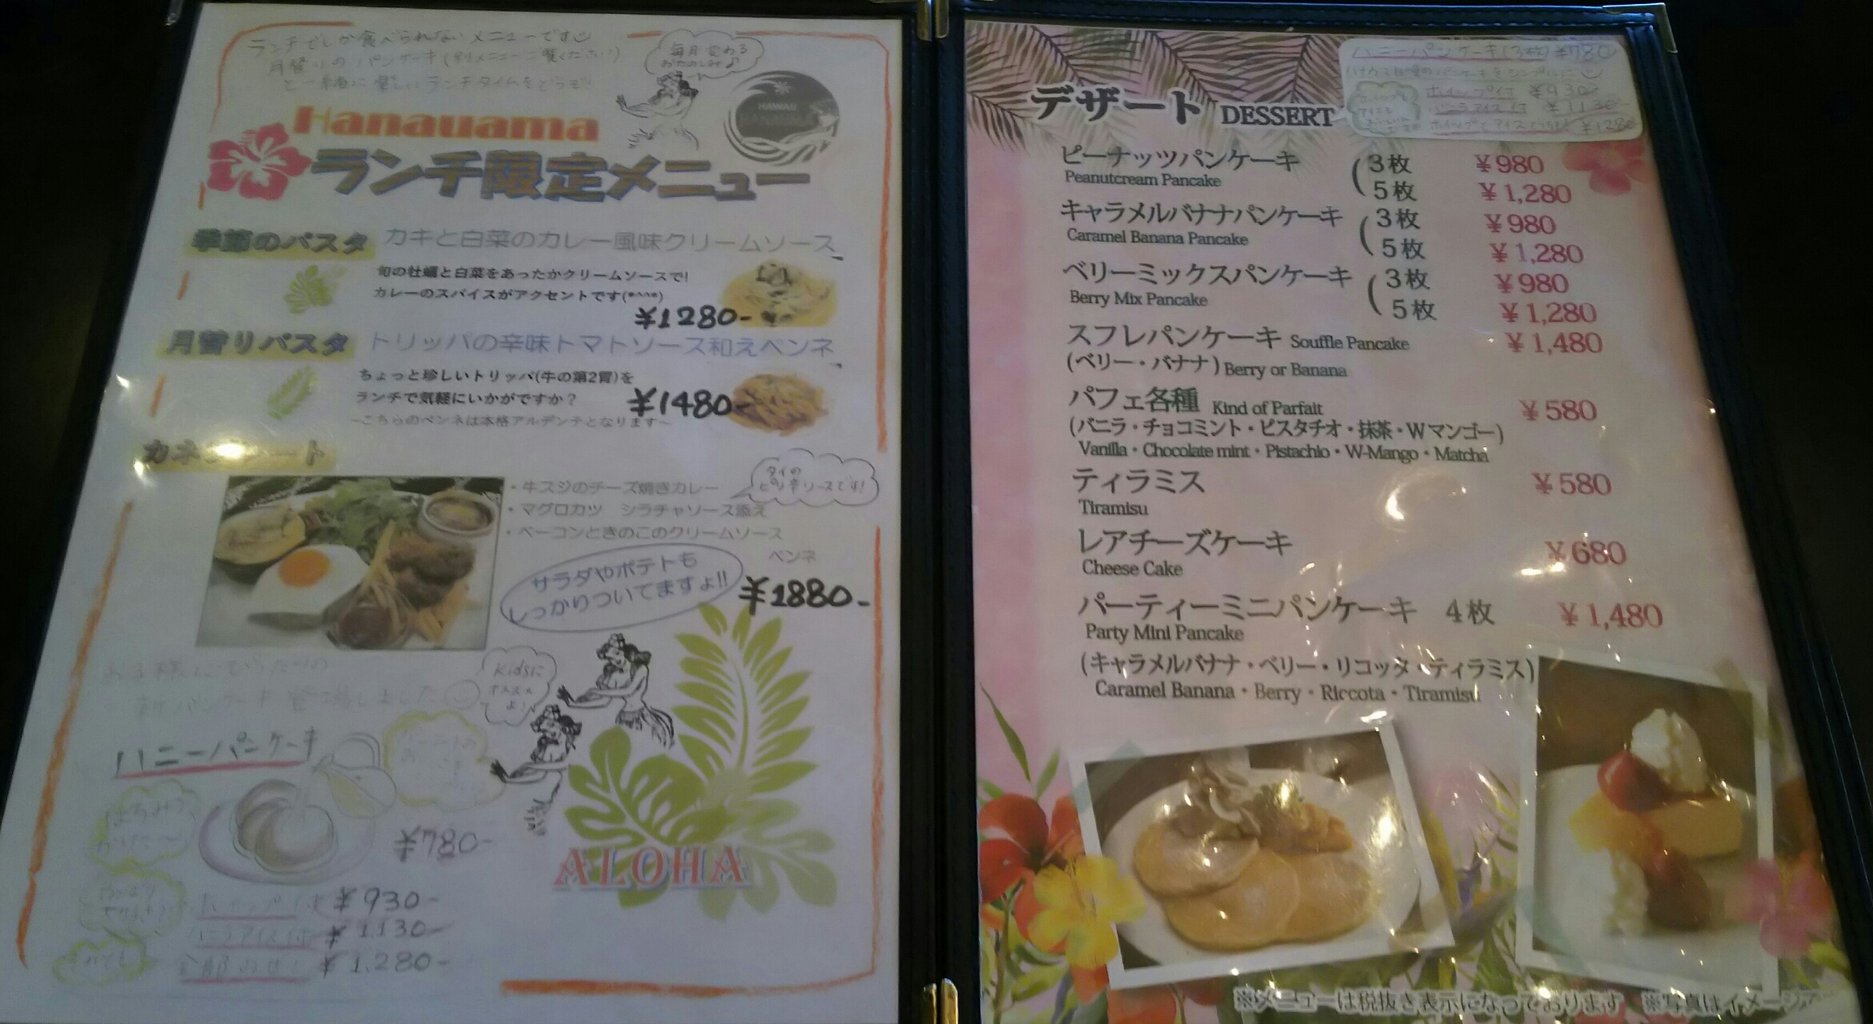 ランチでしか食べられないメニューです
月替りのパンケーキ(別メニューご覧ください)
と一緒に楽しいランチタイムをどうぞ!
毎月変わる
おたのしみ♪
HAWAII
Hanauama
ランチ限定メニュー
季節のパスタ カキと白菜のカレー風味クリームソース
旬の牡蠣と白菜をあったかクリームソースで!
カレーのスパイスがアクセントです(*^^*)
¥1280-
月替りパスタ トリッパの辛味トマトソース和えペンネ
ちょっと珍しいトリッパ(牛の第2胃)を
ランチで気軽にいかがですか?
¥1480-
~こちらのペンネは本格アルデンテとなります~
・牛スジのチーズ焼きカレー
・マグロカツ シラチャソース添え
・ベーコンときのこのクリームソース
ペンネ
タイの
ピリ辛ソースです!
サラダやポテトも
しっかりついてますょ!!
¥1880-
Kidsに
オススメ
よ!
新パンケーキ登場しました
ハニーパンケーキ
はちみつ
かけた〜
¥780-
ホイップ付 ¥930-
バニラアイス付 ¥1.130-
全部のせ! ¥1.280-
ALOHA
デザート DESSERT
ハニーパンケーキ(3枚) ¥780
ホイップ付 ¥930-
バニラアイス付 ¥1130-
ホイップとアイスどっちも ¥1280
ピーナッツパンケーキ 3枚 ¥980
Peanutcream Pancake 5枚 ¥1,280
キャラメルバナナパンケーキ 3枚 ¥980
Caramel Banana Pancake 5枚 ¥1,280
ベリーミックスパンケーキ 3枚 ¥980
Berry Mix Pancake 5枚 ¥1,280
スフレパンケーキ Souffle Pancake ¥1,480
(ベリー・バナナ) Berry or Banana
パフェ各種 Kind of Parfait ¥580
(バニラ・チョコミント・ピスタチオ・抹茶・Wマンゴー)
Vanilla・Chocolate mint・Pistachio・W-Mango・Matcha
ティラミス ¥580
Tiramisu
レアチーズケーキ ¥680
Cheese Cake
パーティーミニパンケーキ 4枚 ¥1,480
Party Mini Pancake
(キャラメルバナナ・ベリー・リコッタ・ティラミス)
Caramel Banana・Berry・Riccota・Tiramisu
※メニューは税抜き表示になっております ※写真はイメージ